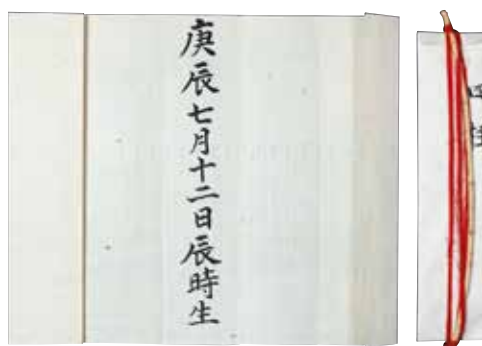 庚辰七月十二日辰時生